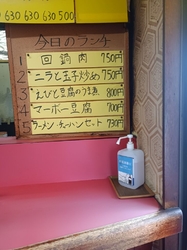 630 630 630 500
今日のランチ
1 回鍋肉 750円
2 ニラと玉子炒め 750円
3 えびと豆腐のうま煮 800円
4 マーボー豆腐 700円
5 ラーメン・チャーハンセット 730円